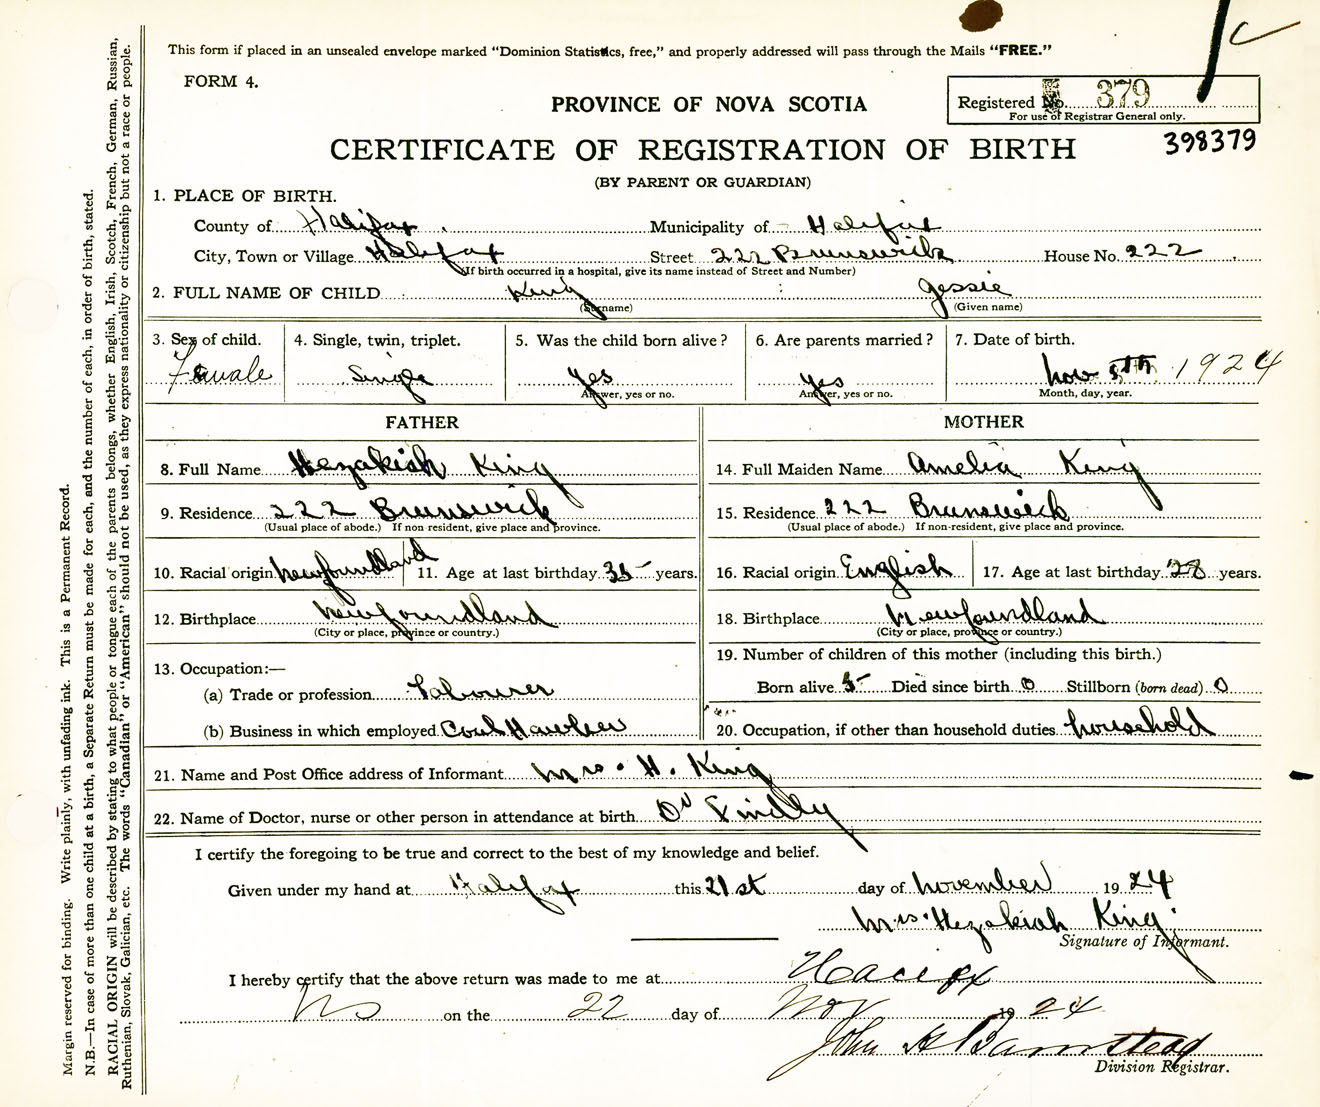 This form if placed in an unsealed envelope marked "Dominion Statistics, free," and properly addressed will pass through the Mails "FREE."
FORM 4.
Registered No. 379
For use of Registrar General only.
PROVINCE OF NOVA SCOTIA
398379
CERTIFICATE OF REGISTRATION OF BIRTH
(BY PARENT OR GUARDIAN)
1. PLACE OF BIRTH.
County of Halifax Municipality of Halifax
City, Town or Village Halifax Street 222 Brunswick House No. 222
(If birth occurred in a hospital, give its name instead of Street and Number)
2. FULL NAME OF CHILD King Jessie
(Surname) (Given name)
3. Sex of child. 4. Single, twin, triplet. 5. Was the child born alive? 6. Are parents married? 7. Date of birth.
Female Single yes yes Nov 5th 1924
Answer, yes or no. Answer, yes or no. Month, day, year.
FATHER MOTHER
8. Full Name Hezakiah King 14. Full Maiden Name Amelia King
9. Residence 222 Brunswick 15. Residence 222 Brunswick
(Usual place of abode.) If non-resident, give place and province. (Usual place of abode.) If non-resident, give place and province.
10. Racial origin Newfoundland 11. Age at last birthday 35 years. 16. Racial origin English 17. Age at last birthday 28 years.
12. Birthplace Newfoundland 18. Birthplace Newfoundland
(City or place, province or country.) (City or place, province or country.)
13. Occupation:— 19. Number of children of this mother (including this birth.)
(a) Trade or profession Labourer Born alive 5 Died since birth 0 Stillborn (born dead) 0
(b) Business in which employed Coal Hawker 20. Occupation, if other than household duties household
21. Name and Post Office address of Informant Mrs. H. King
22. Name of Doctor, nurse or other person in attendance at birth Dr
I certify the foregoing to be true and correct to the best of my knowledge and belief.
Given under my hand at Halifax this 21st day of November 1924
Mrs. Hezakiah King
Signature of Informant.
I hereby certify that the above return was made to me at Halifax
NS on the 22 day of Nov 1924
John A Barnstead
Division Registrar.
Margin reserved for binding. Write plainly, with unfading ink. This is a Permanent Record.
N.B.—In case of more than one child at a birth, a Separate Return must be made for each, and the number of each, in order of birth, stated.
RACIAL ORIGIN will be described by stating to what people or tongue each of the parents belongs, whether English, Irish, Scotch, French, German, Russian,
Ruthenian, Slovak, Galician, etc. The words "Canadian" or "American" should not be used, as they express nationality or citizenship but not a race or people.